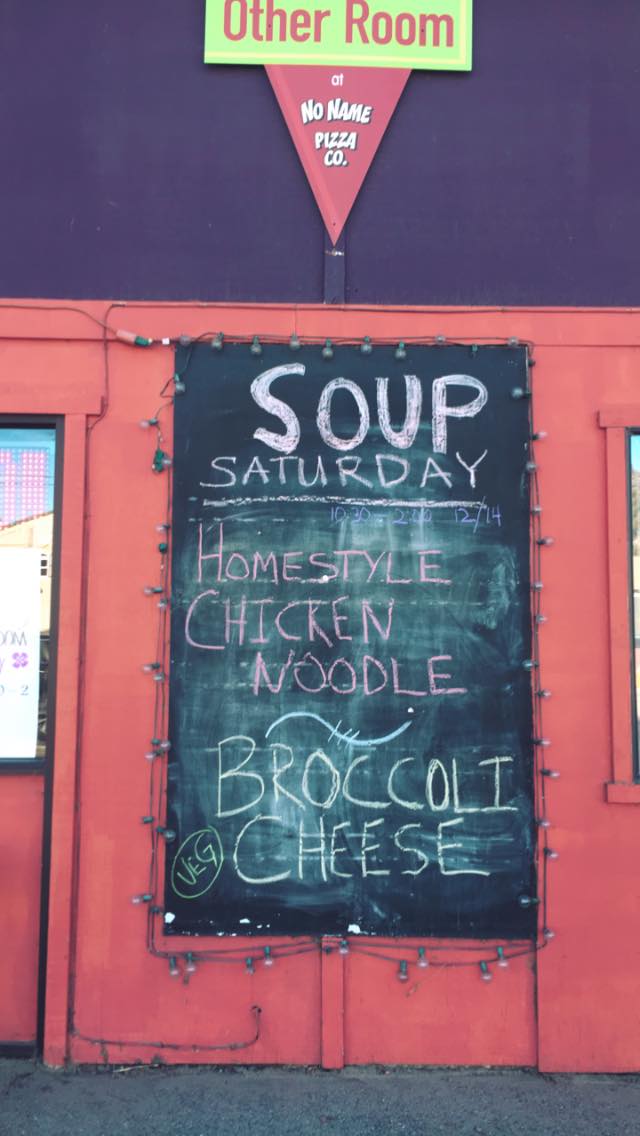 Other Room
at
NO NAME
PIZZA
CO.
SOUP
SATURDAY
10:30 - 2:00 12/14
HOMESTYLE
CHICKEN
NOODLE
BROCCOLI
CHEESE
VEG